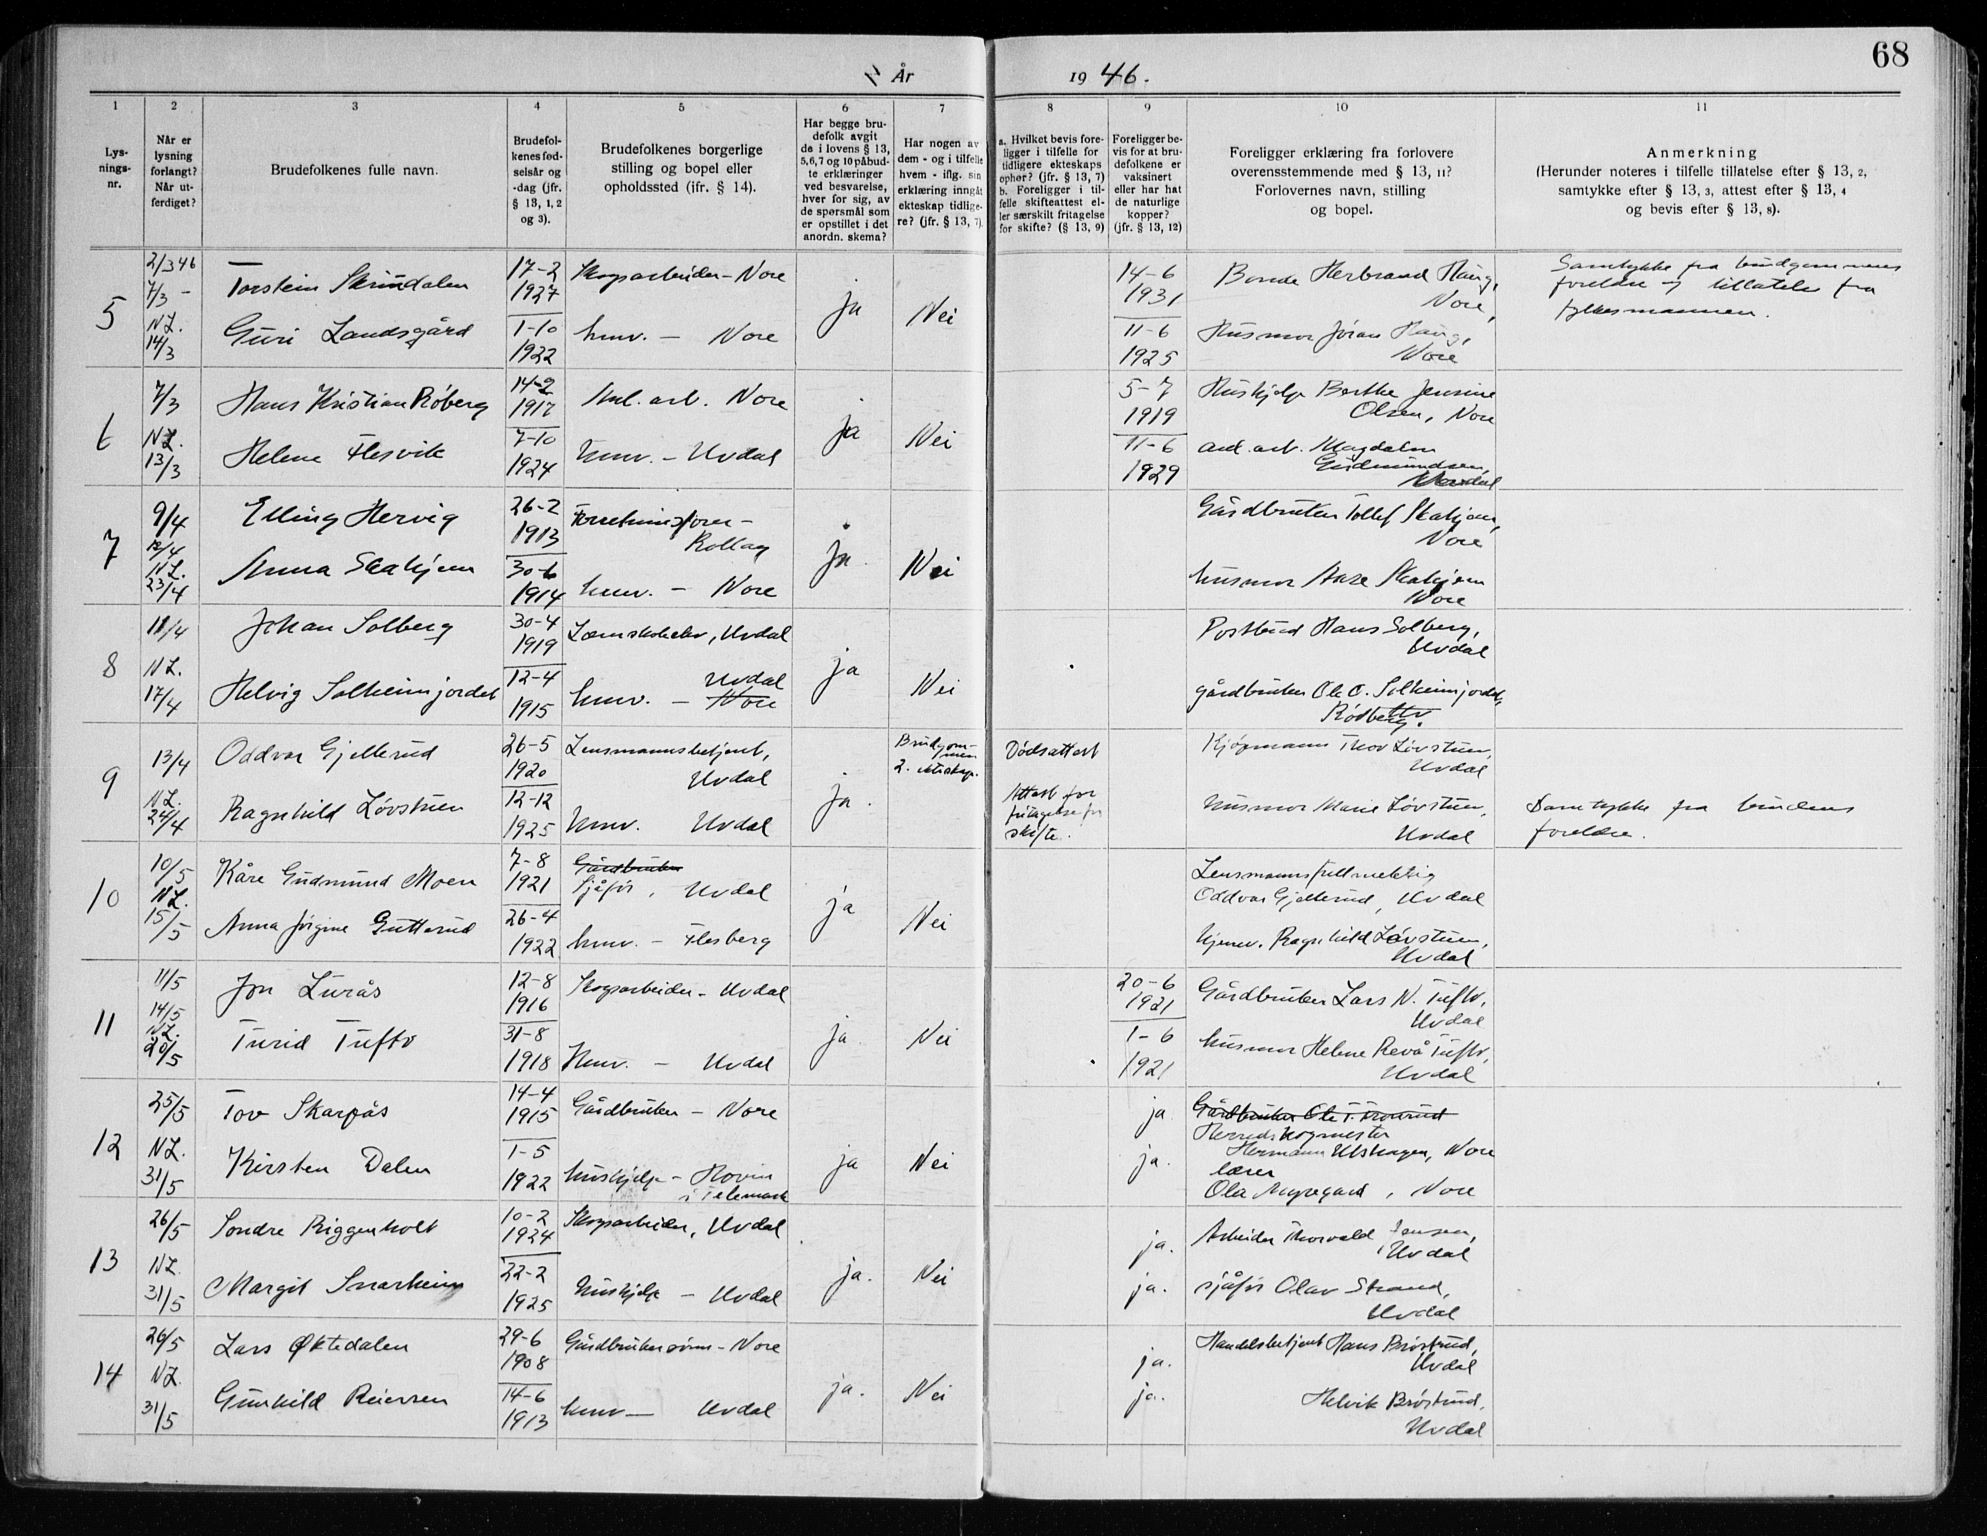 68
År 1946.
1 2 3 4 5 6 7 8 9 10 11
Lysningsnr.
Når er lysning forlangt? Når utferdiget?
Brudefolkenes fulle navn.
Brudefolkenes fødselsår og -dag (jfr. § 13, 1, 2 og 3).
Brudefolkenes borgerlige stilling og bopel eller opholdssted (ifr. § 14).
Har begge brudefolk avgit de i lovens § 13, 5, 6, 7 og 10 påbudte erklæringer ved besvarelse, hver for sig, av de spørsmål som er opstillet i det anordn. skema?
Har nogen av dem - og i tilfelle hvem - iflg. sin erklæring inngått ekteskap tidligere? (jfr. § 13, 7).
a. Hvilket bevis foreligger i tilfelle for tidligere ekteskaps ophør? (jfr. § 13, 7) b. Foreligger i tilfelle skifteattest eller særskilt fritagelse for skifte? (§ 13, 9)
Foreligger bevis for at brudefolkene er vaksinert eller har hat de naturlige kopper? (jfr. § 13, 12)
Foreligger erklæring fra forlovere overensstemmende med § 13, 11? Forlovernes navn, stilling og bopel.
Anmerkning (Herunder noteres i tilfelle tillatelse efter § 13, 2, samtykke efter § 13, 3, attest efter § 13, 4 og bevis efter § 13, 8).
5
2/3 46
7/3 -
N.L.
14/3
Torstein Skrindalen
17-2 1927
Skogsarbeider - Nore
Guri Landsgård
1-10 1922
hmv. - Nore
ja
Nei
14-6 1931
11-6 1925
Bonde Herbrand Haug, Nore,
Husmor Jøran Haug, Nore
Samtykke fra brudgommens
foreldre og tillatelse fra
fylkesmannen.
6
7/3
N.L.
13/3
Hans Kristian Røberg
14-2 1917
Anl. arb. Nore
Helene Flesvik
7-10 1924
hmv. - Uvdal
ja
Nei
5-7 1919
11-6 1929
Hushjelp Berthe Jensine Olsen, Nore
Magdalen Gudmundsen,
7
9/4
12/4
N.L.
23/4
Elling Hervig
26-2 1913
Forretningsfører - Rollag
Anna Skahjem
30-6 1914
hmv. - Nore
ja
Nei
Gårdbruker Tollef Skahjem, Nore
husmor Aase Skahjem Nore
8
11/4
N.L.
17/4
Johan Solberg
30-4 1919
Lærerskoleelev, Uvdal
Helvig Solheimjordet
12-4 1915
hmv. - Nore Uvdal
ja
Nei
Postbud Hans Solberg, Uvdal
gårdbruker Ole O. Solheimjordet, Rødberg.
9
13/4
N.L.
24/4
Oddvar Gjellerud
26-5 1920
Lensmannsbetjent, Uvdal
Ragnhild Løvstuen
12-12 1925
hmv. Uvdal
ja.
Brudgommen 2. ekteskap.
Dødsattest
Attest for fritagelse for skifte.
Kjøpmann Thov Løvstuen, Uvdal
husmor Marie Løvstuen, Uvdal
Samtykke fra brudens
foreldre.
10
10/5
N.L.
15/5
Kåre Gudmund Moen
7-8 1921
Gårdbruker
Sjåfør, Uvdal
Anna Jørgine Gutterud
26-4 1922
hmv. - Flesberg
ja
Nei
Lensmannsfullmektig
Oddvar Gjellerud, Uvdal
hjemmev. Ragnhild Løvstuen, Uvdal
11
11/5
14/5
N.L.
20/5
Jon Lurås
12-8 1916
Skogsarbeider - Uvdal
Turid Tufto
31-8 1918
Hmv. - Uvdal
ja.
Nei
20-6 1921
1-6 1921
Gårdbruker Lars N. Tufto, Uvdal
husmor Helene Revå Tufto, Uvdal
12
25/5
N.L.
31/5
Tov Skarpås
14-4 1915
Gårdbruker - Nore
Kirsten Dalen
1-5 1922
hushjelp - Hovin i Telemark
ja
Nei
ja
ja.
Gårdbruker Ole T.
Herredskogmester
Hermann Ulshagen, Nore
lærer
Ola Myregard, Nore
13
26/5
N.L.
31/5
Sondre Riggenholt
10-2 1924
Skogsarbeider, Uvdal
Margit Snarheim
22-2 1925
hushjelp - Uvdal
ja.
Nei
ja.
ja.
Arbeider Thorvald Jensen, Uvdal
sjåfør Olav Strand, Uvdal
14
26/5
N.L.
31/5
Lars Øktedalen
29-6 1908
Gårdbrukersønn - Nore
Gunhild Reiersen
14-6 1913
hmv - Uvdal
ja.
Nei
ja.
ja.
Handelsbetjent Hans Brøstrud, Uvdal
Helvik Brøstrud, Uvdal